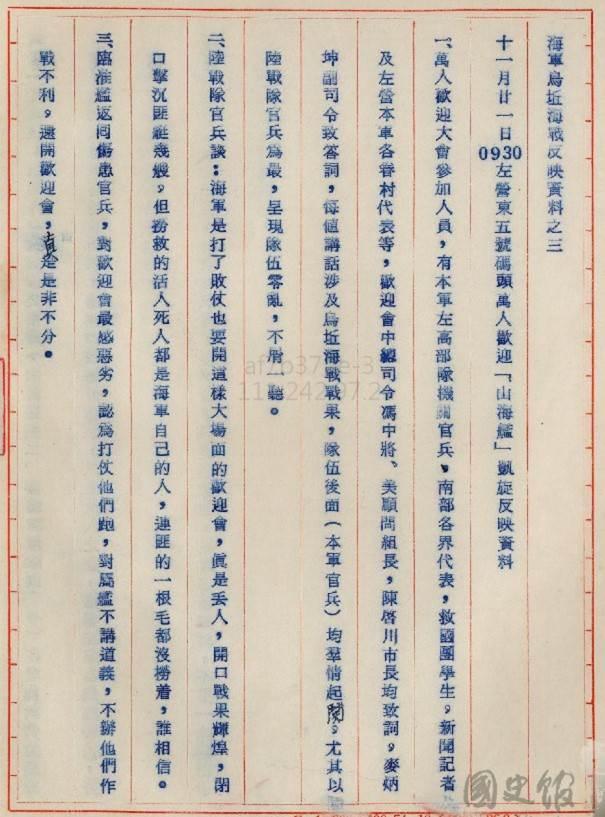 海軍烏坵海戰反映資料之三
十一月廿一日0930左營東五號碼頭萬人歡迎「山海艦」凱旋反映資料
一、萬人歡迎大會參加人員,有本軍左高部隊機關官兵,南部各界代表,救國團學生,新聞記者
及左營本軍各眷村代表等,歡迎會中總司令馮中將、美顧問組長,陳啓川市長均致詞,麥炳
坤副司令致答詞,每値講話涉及烏坵海戰戰果,隊伍後面(本軍官兵)均羣情起鬨,尤其以
陸戰隊官兵爲最,呈現隊伍零亂,不屑 聽。
二、陸戰隊官兵談:海軍是打了敗仗也要開這樣大場面的歡迎會,眞是丢人,開口戰果輝煌,閉
口擊沉匪艇幾艘,但撈救的活人死人都是海軍自己的人,連匪的一根毛都沒撈着,誰相信。
三、臨淮艦返回傷患官兵,對歡迎會最感惡劣,認爲打仗他們跑,對屬艦不講道義,不辦他們作
戰不利,還開歡迎會,眞是是非不分。
國史館